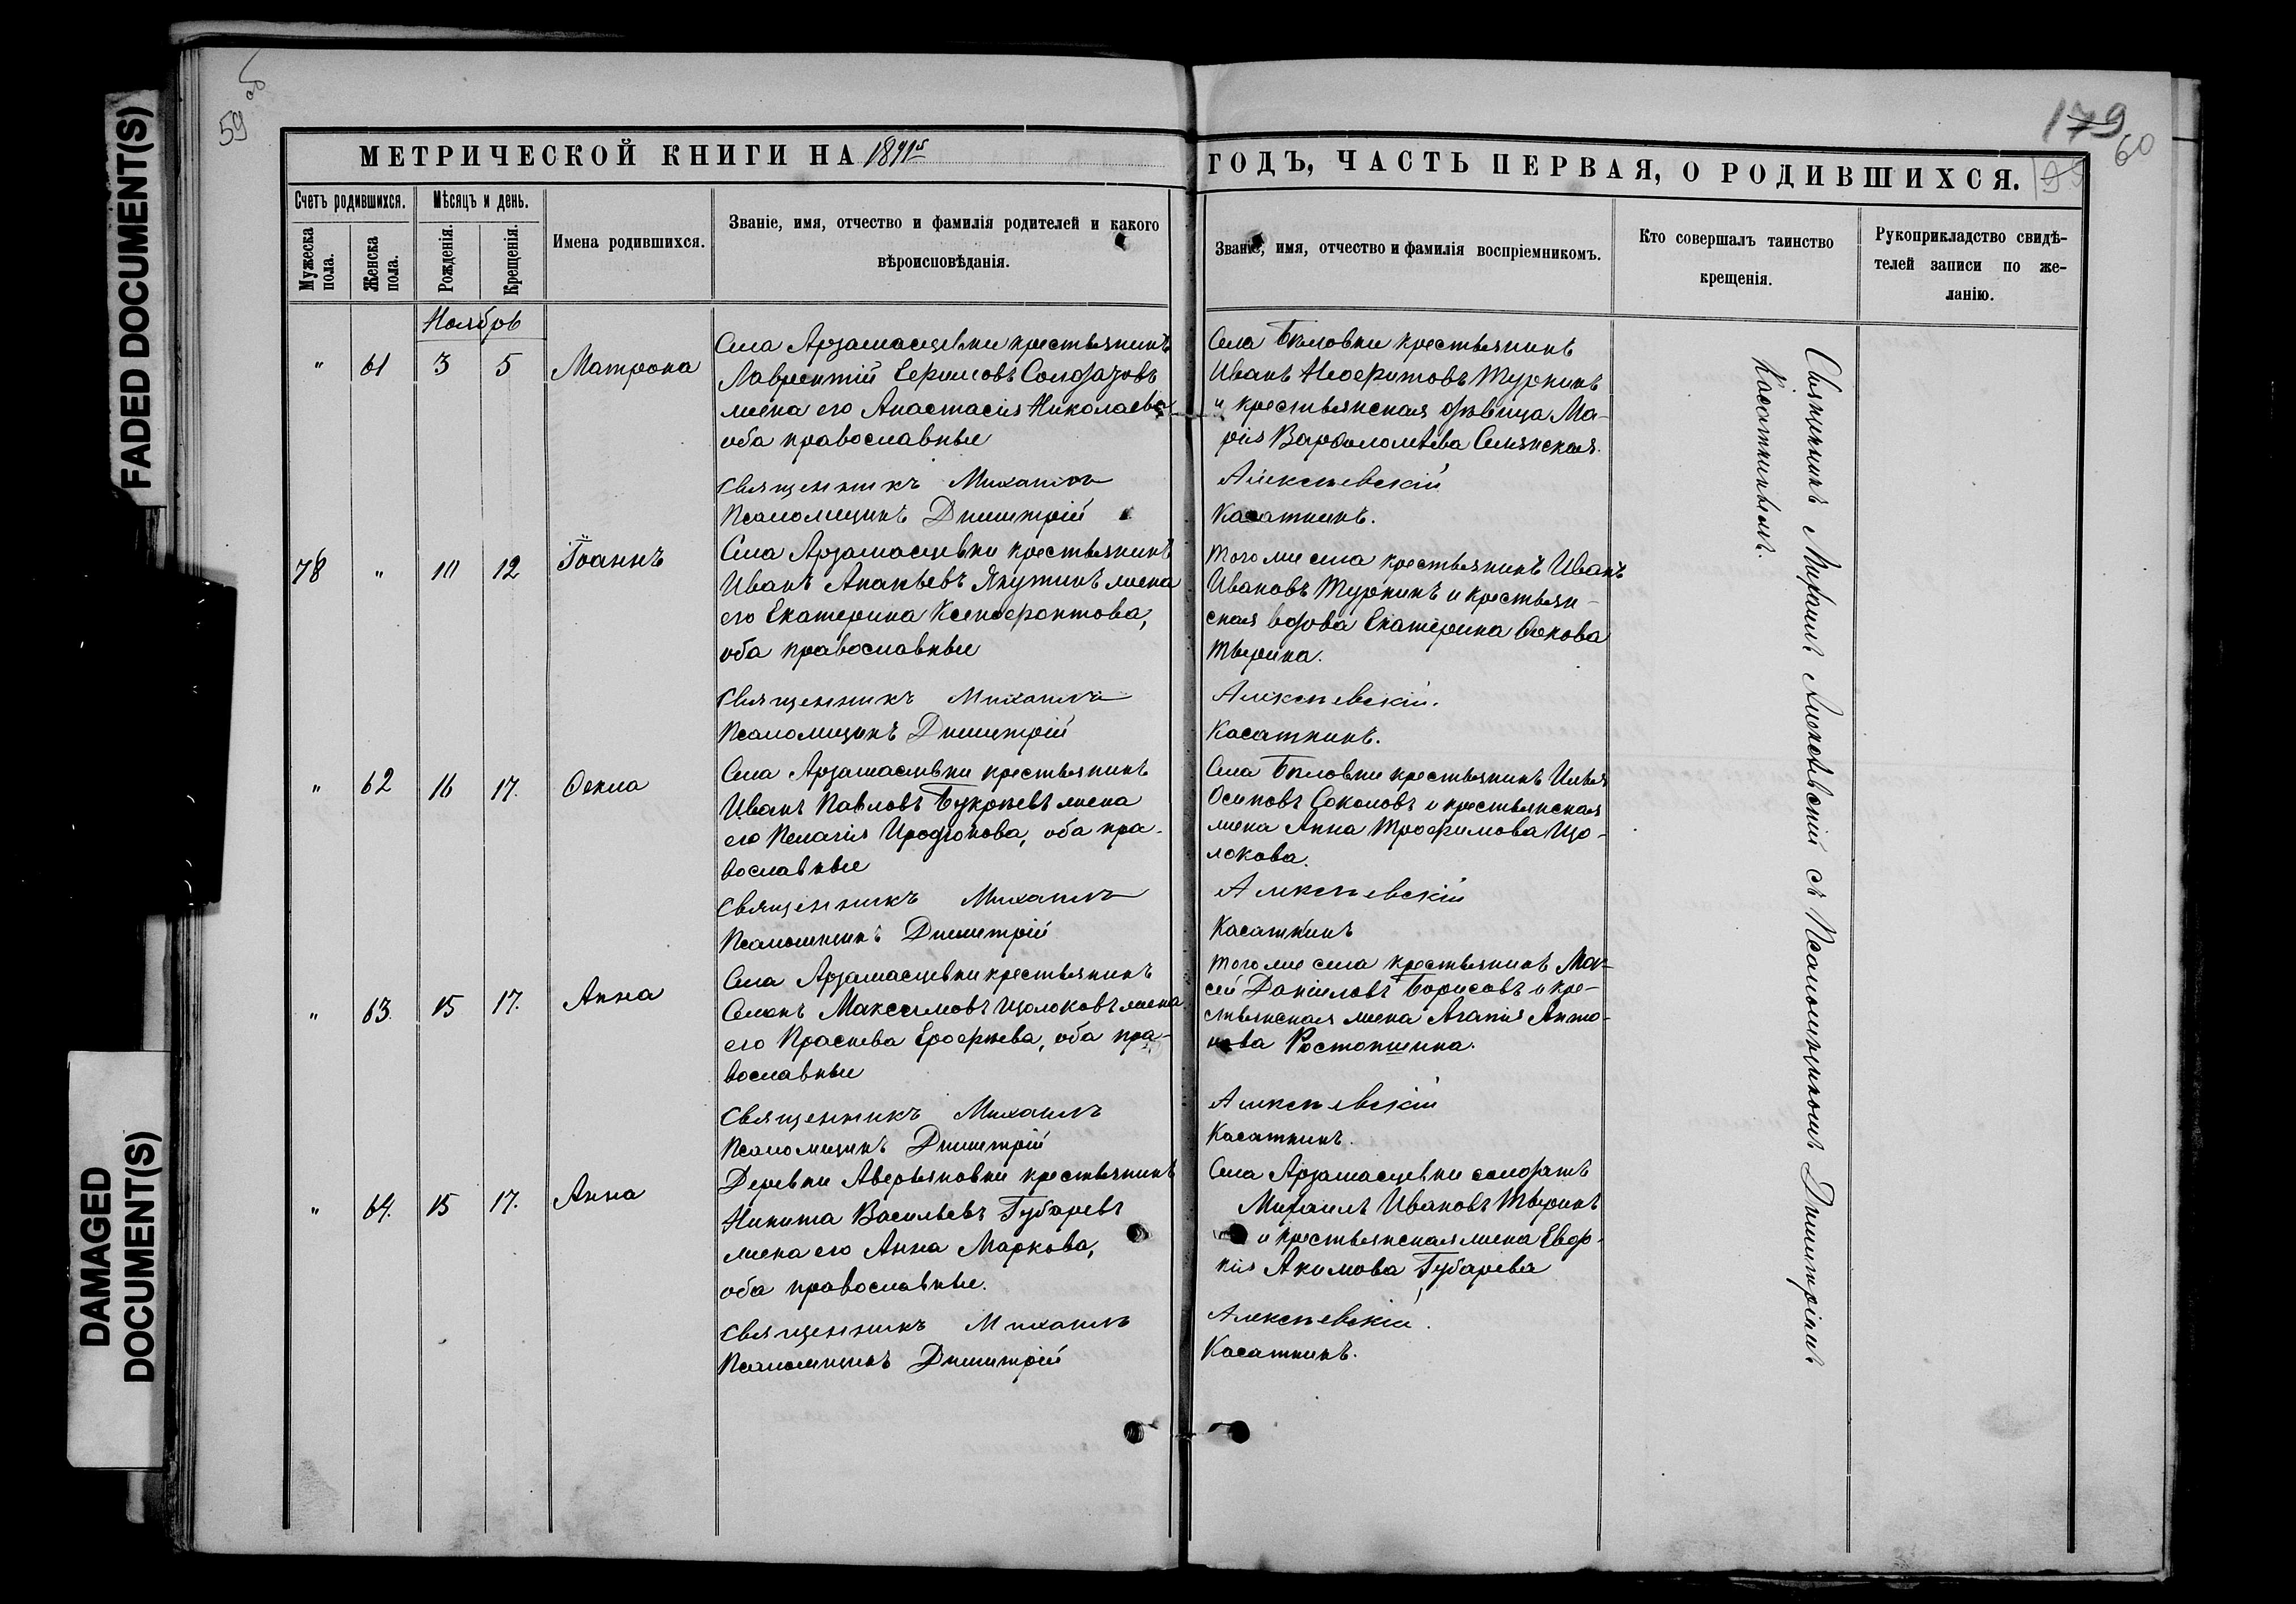 FADED DOCUMENT(S)
DAMAGED DOCUMENT(S)
59 об
МЕТРИЧЕСКОЙ КНИГИ НА
Счетъ родившихся.
Мѣсяцъ и день.
Мужеска пола.
Женска пола.
Рожденія.
Крещенія.
Имена родившихся.
Званіе, имя, отчество и фамилія родителей и какого
вѣроисповѣданія.
Ноябрь
" 61 3 5 Матрона
Села Арзамасцевки крестьянинъ
Лаврентій Солдатовъ
жена его Анастасія Николаева
оба православные
Священникъ Михаилъ
Псаломщикъ Димитрій
78 " 10 12 Іоаннъ
Села Арзамасцевки крестьянинъ
Иванъ Ананьевъ Якутинъ жена
его Екатерина Ксенофонтова,
оба православные
Священникъ Михаилъ
Псаломщикъ Димитрій
" 62 16 17. Ѳекла
Села Арзамасцевки крестьянинъ
Иванъ Павловъ Букрѣевъ жена
его Пелагія Иродіонова, оба пра-
вославные
Священникъ Михаилъ
Псаломщикъ Димитрій
" 63. 15 17. Анна
Села Арзамасцевки крестьянинъ
Семенъ Максимовъ Щолоковъ жена
его Прасковья Ерофѣева, оба пра-
вославные
Священникъ Михаилъ
Псаломщикъ Димитрій
" 64. 15 17. Анна
Деревни Аверьяновки крестьянинъ
Никита Васильевъ Губаревъ
жена его Анна Маркова,
оба православные.
Священникъ Михаилъ
Псаломщикъ Димитрій
179
60
ГОДЪ, ЧАСТЬ ПЕРВАЯ, О РОДИВШИХСЯ.
Званіе, имя, отчество и фамилія воспріемниковъ.
Кто совершалъ таинство
крещенія.
Рукоприкладство свидѣ-
телей записи по же-
ланію.
Села Бѣловки крестьянинъ
Иванъ Неофитовъ Туркинъ
и крестьянская дѣвица Ма-
рія Варѳоломѣева
Алексѣевскій
Касаткинъ.
Того же села крестьянинъ Иванъ
Ивановъ Туркинъ и крестьян-
ская вдова Екатерина
Тверина.
Алексѣевскій.
Касаткинъ.
Села Бѣловки крестьянинъ Илья
Осиповъ Соколовъ и крестьянская
жена Анна Трофимова Що-
локова.
Алексѣевскій
Касаткинъ
Того же села крестьянинъ Мой-
сей Даніиловъ Борисовъ и кре-
стьянская жена Агапія Анто-
нова Ростопшина.
Алексѣевскій
Касаткинъ.
Села Арзамасцевки солдатъ
Михаилъ Ивановъ Тверинъ
и крестьянская жена Евдо-
кія Акимова Губарева
Алексѣевскій.
Касаткинъ.
Священникъ Михаилъ Алексѣевскій съ Псаломщикомъ Димитріемъ
Касаткинымъ.